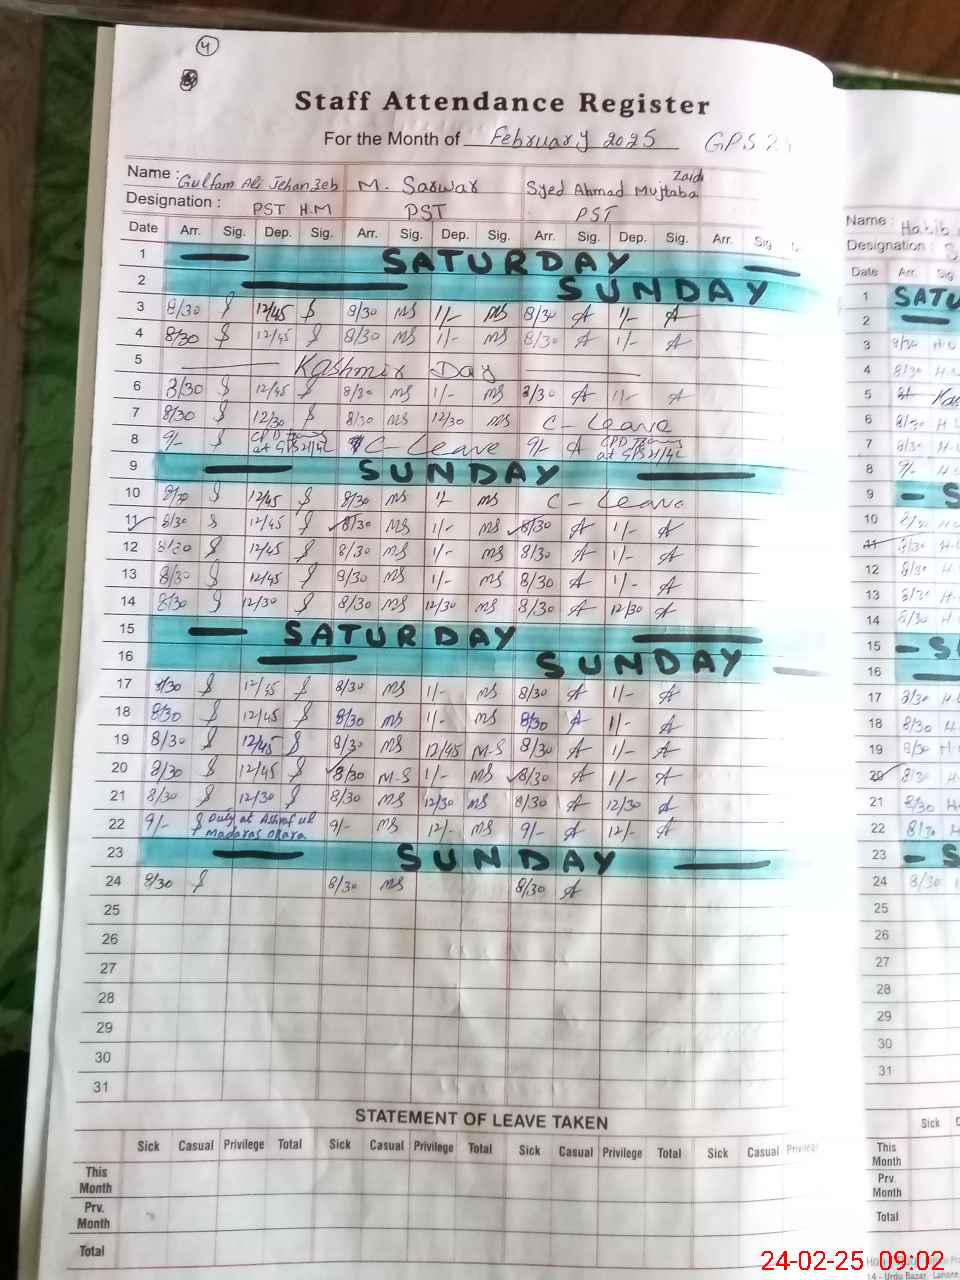 4
Staff Attendance Register
For the Month of February 2025 GPS
Name : Gulfam Ali Jehanzeb M. Sarwar Syed Ahmad Mujtaba Zaidi
Designation : PST H.M PST PST
Date Arr. Sig. Dep. Sig. Arr. Sig. Dep. Sig. Arr. Sig. Dep. Sig. Arr. Sig
1 SATURDAY
2 SUNDAY
3 8/30 12/45 8/30 MS 1/- MS 8/30 A 1/- A
4 8/30 12/45 8/30 MS 1/- MS 8/30 A 1/- A
5 Kashmir Day
6 8/30 12/45 8/30 MS 1/- MS 8/30 A 1/- A
7 8/30 12/30 8/30 MS 12/30 MS C - Leave
8 9/- CPD at GPS 21/4L C - Leave 9/- A CPD at GPS 21/4L
9 SUNDAY
10 8/30 12/45 8/30 MS 1/- MS C - Leave
11 8/30 12/45 8/30 MS 1/- MS 8/30 A 1/- A
12 8/30 12/45 8/30 MS 1/- MS 8/30 A 1/- A
13 8/30 12/45 8/30 MS 1/- MS 8/30 A 1/- A
14 8/30 12/30 8/30 MS 12/30 MS 8/30 A 12/30 A
15 SATURDAY
16 SUNDAY
17 8/30 12/45 8/30 MS 1/- MS 8/30 A 1/- A
18 8/30 12/45 8/30 MS 1/- MS 8/30 A 1/- A
19 8/30 12/45 8/30 MS 12/45 M-S 8/30 A 1/- A
20 8/30 12/45 8/30 M-S 1/- MS 8/30 A 1/- A
21 8/30 12/30 8/30 MS 12/30 MS 8/30 A 12/30 A
22 9/- Duty at Ashraf ul Madaras Okara 9/- MS 12/- MS 9/- A 12/- A
23 SUNDAY
24 8/30 8/30 MS 8/30 A
25
26
27
28
29
30
31
STATEMENT OF LEAVE TAKEN
Sick Casual Privilege Total Sick Casual Privilege Total Sick Casual Privilege Total Sick Casual Privilege
This Month
Prv. Month
Total
Name : Habib
Designation : S
Date Arr. Sig
1 SATU
2
3 8/30 H
4 8/30 H
5 Kas
6 8/30 H
7 8/30 H
8 9/- H
9 S
10 8/30 H
11 8/30 H
12 8/30 H
13 8/30 H
14 8/30 H
15 S
16
17 8/30 H
18 8/30 H
19 8/30 H
20 8/30 H
21 8/30 H
22 8/30 H
23 S
24 8/30
25
26
27
28
29
30
31
Sick C
This Month
Prv. Month
Total
14 - Urdu Bazar, Lahore
24-02-25 09:02